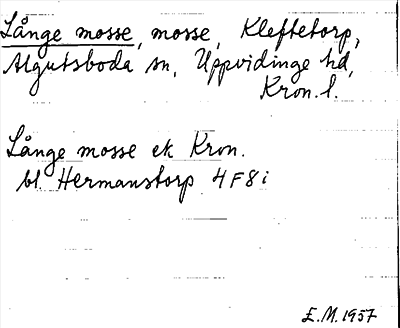 Långe mosse, mosse, Kleftetorp,
Algutsboda sn, Uppvidinge hd,
Kron. l.
Långe mosse ek Kron.
bl Hermanstorp 4F8i
E.M. 1957